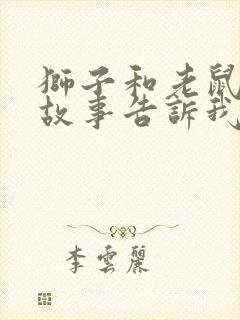 獅子和老鼠
故事告訴我
李雲麗